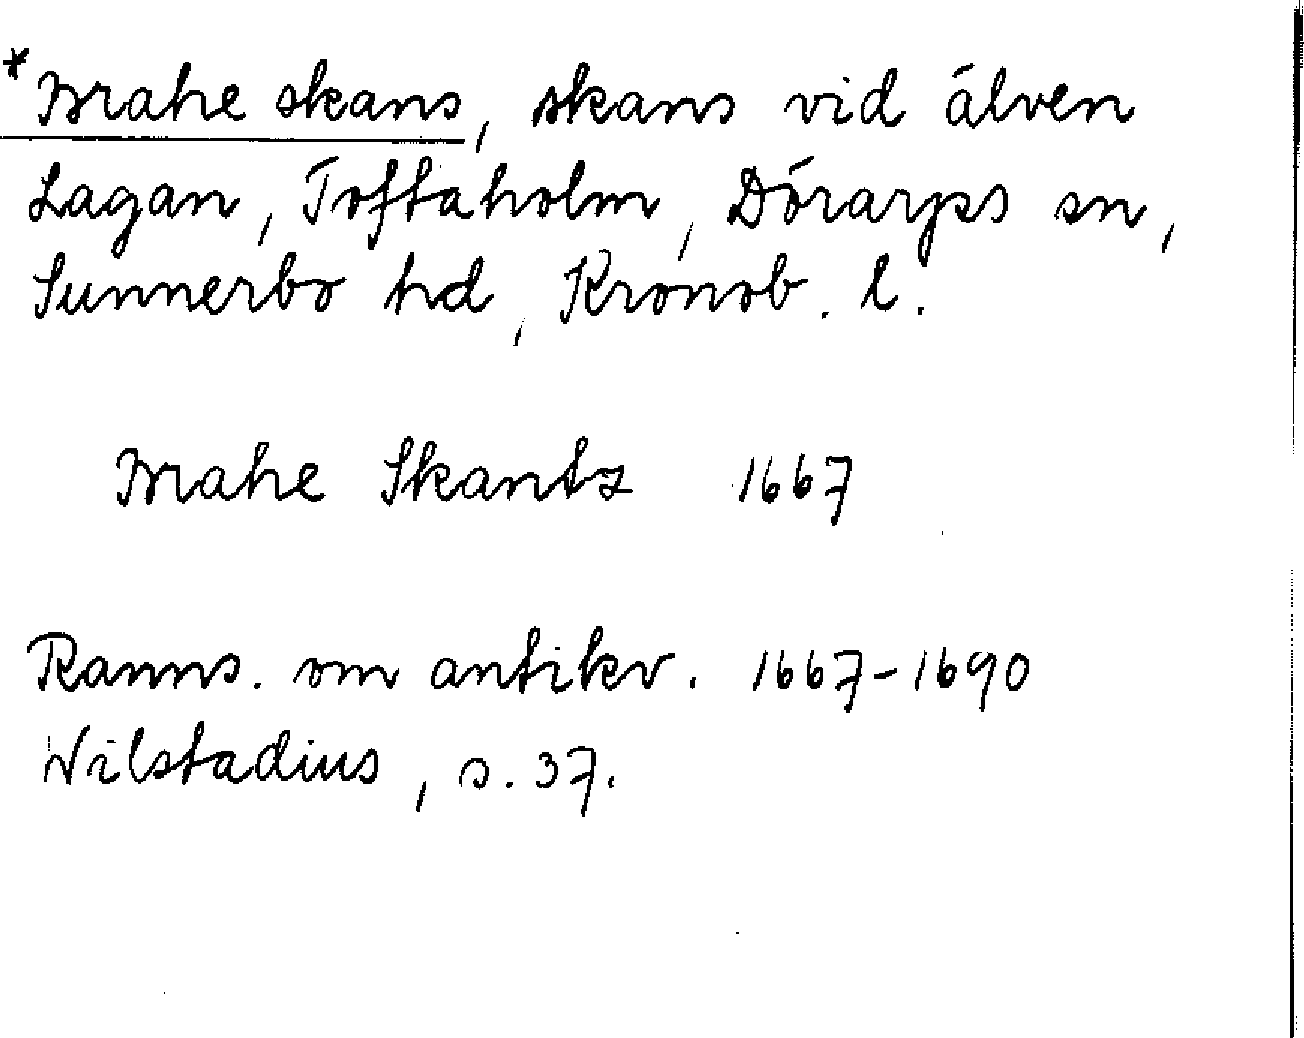 *Brahe skans, skans vid älven
Lagan, Toftaholm, Dörarps sn,
Sunnerbo hd, Kronob. l.
Brahe Skantz 1667
Ranns. om antikv. 1667-1690
Wilstadius, s. 37.